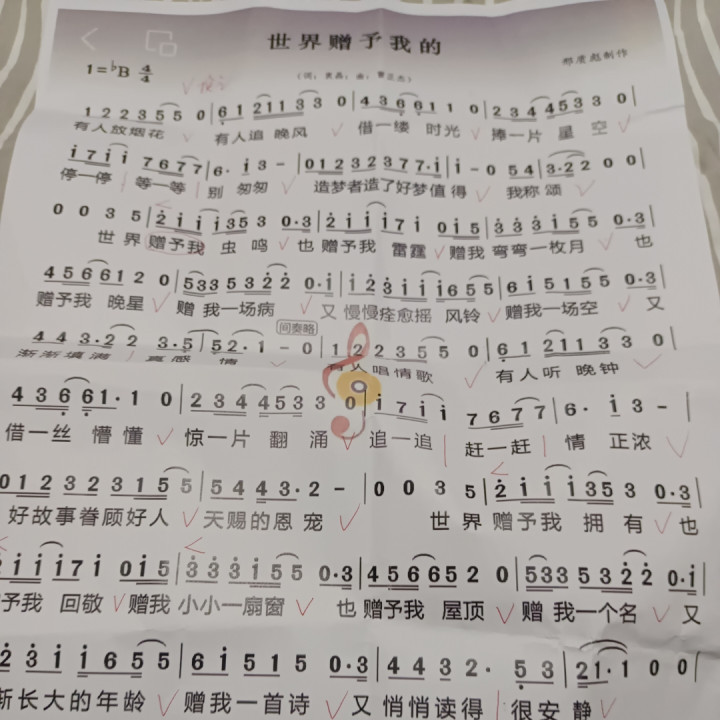 世界赠予我的
郑质彪制作
1=♭B 4/4
(词：袁晶；曲：曹正杰)
1 2 2 3 5 5 0 | 6 1 2 1 1 3 3 0 | 4 3 6 6 1 1 0 | 2 3 4 4 5 3 3 0 |
有人放烟花 有人追 晚风 借一缕 时光 捧一片 星 空
i 7 i i 7 6 7 7 | 6· i 3 - | 0 1 2 3 2 3 7 7·i | i - 0 5 4 | 3·2 2 0 0 |
停一停 等一等 别 匆匆 造梦者造了好梦值得 我称 颂
0 0 3 5 | 2 i i i 3 5 3 0·3 | 2 i i i 7 i 0 i 5 | 3 3 3 i 5 5 0·3 |
世界 赠予我 虫 鸣 也 赠予我 雷霆 赠我 弯弯一枚月 也
4 5 6 6 1 2 0 | 5 3 3 5 3 2 2 0·i | i 2 3 i i i 6 5 5 | 6 i 5 1 5 5 0·3 |
赠予我 晚星 赠 我一场病 又 慢慢痊愈摇 风铃 赠我一场空 又
4 4 3·2 2 3·5 | 5 2·1 - 0 | 1 2 2 3 5 5 0 | 6 1 2 1 1 3 3 0 |
间奏略
渐渐填满 真感 情 有人唱情歌 有人听 晚钟
4 3 6 6 1·1 0 | 2 3 4 4 5 3 3 0 | i 7 i i 7 6 7 7 | 6· i 3 - |
借一丝 懵懂 惊一片 翻 涌 追一追 赶一赶 情 正浓
0 1 2 3 2 3 1 5 5 | 5 4 4 3·2 - | 0 0 3 5 | 2 i i i 3 5 3 0·3 |
好故事眷顾好人 天赐的恩 宠 世界 赠予我 拥有 也
2 i i i 7 i 0 i 5 | 3 3 3 i 5 5 0·3 | 4 5 6 6 5 2 0 | 5 3 3 5 3 2 2 0·i |
予我 回敬 赠我 小小一扇窗 也赠予我 屋顶 赠 我一个名 又
2 3 i i 6 5 5 | 6 i 5 1 5 0·3 | 4 4 3 2· 5 3 | 2 1·1 0 0 |
渐长大的年龄 赠我一首诗 又 悄悄读得 很安 静